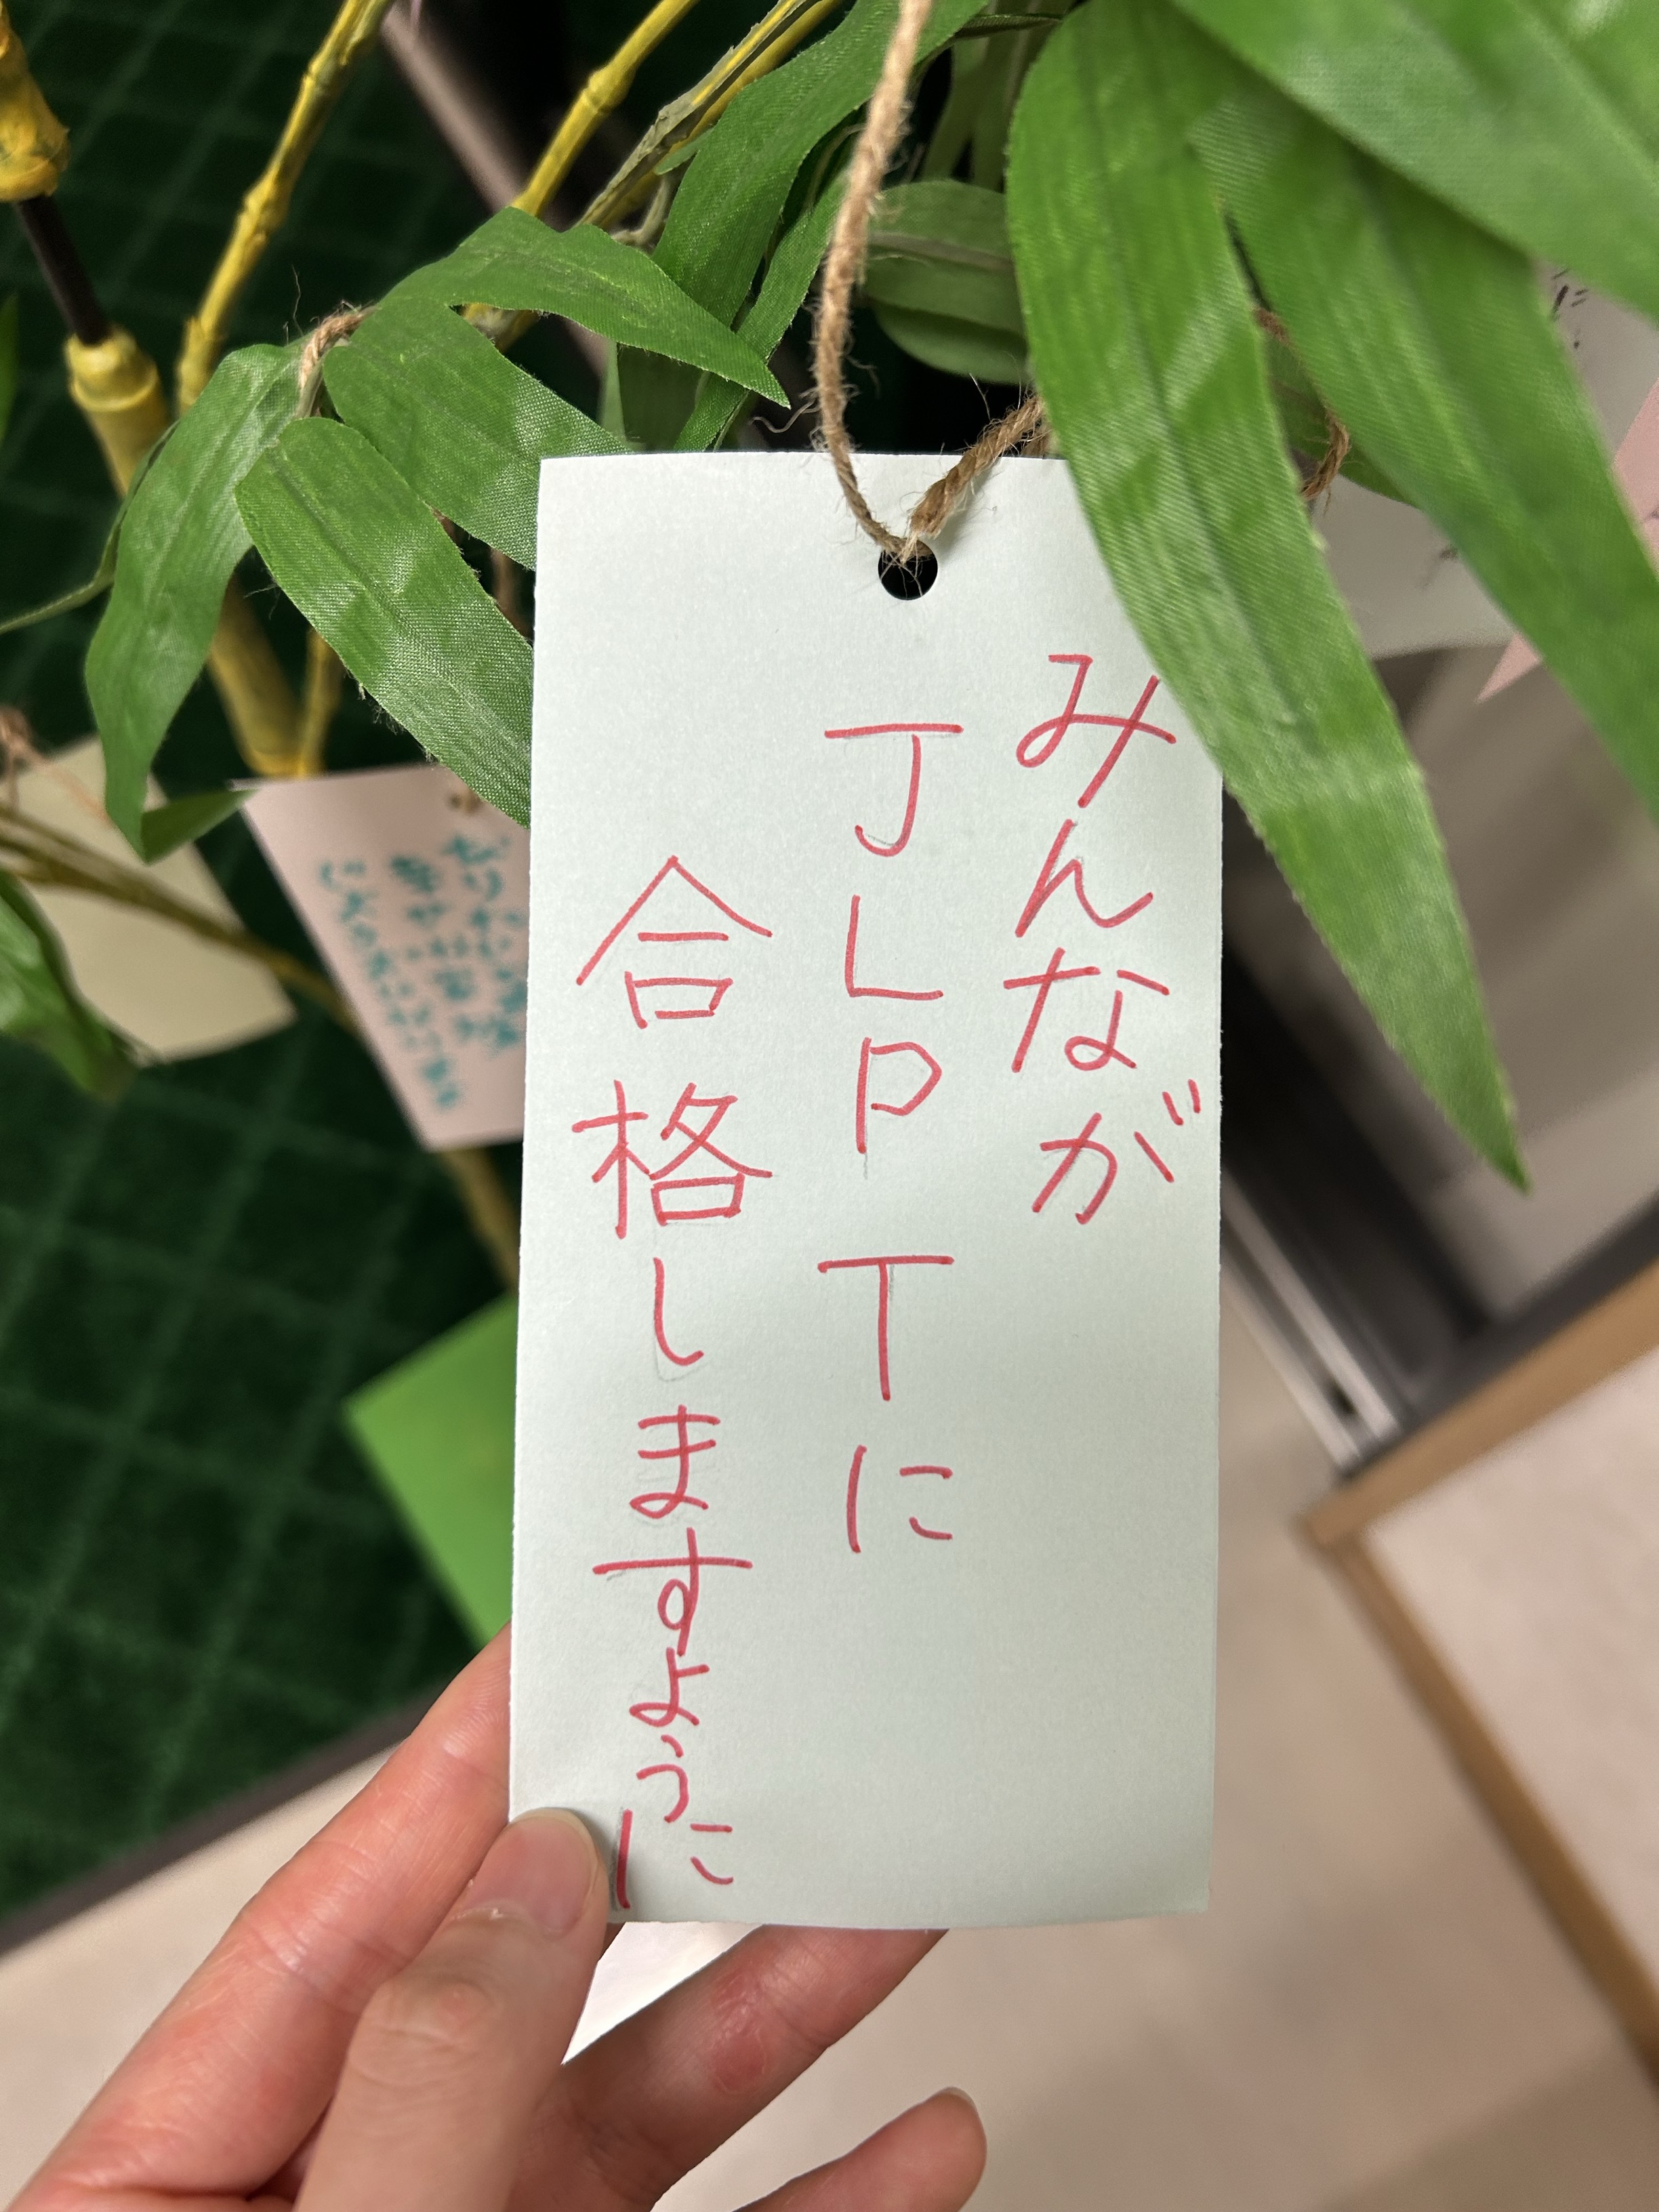 みんなが
JLPTに
合格しますように